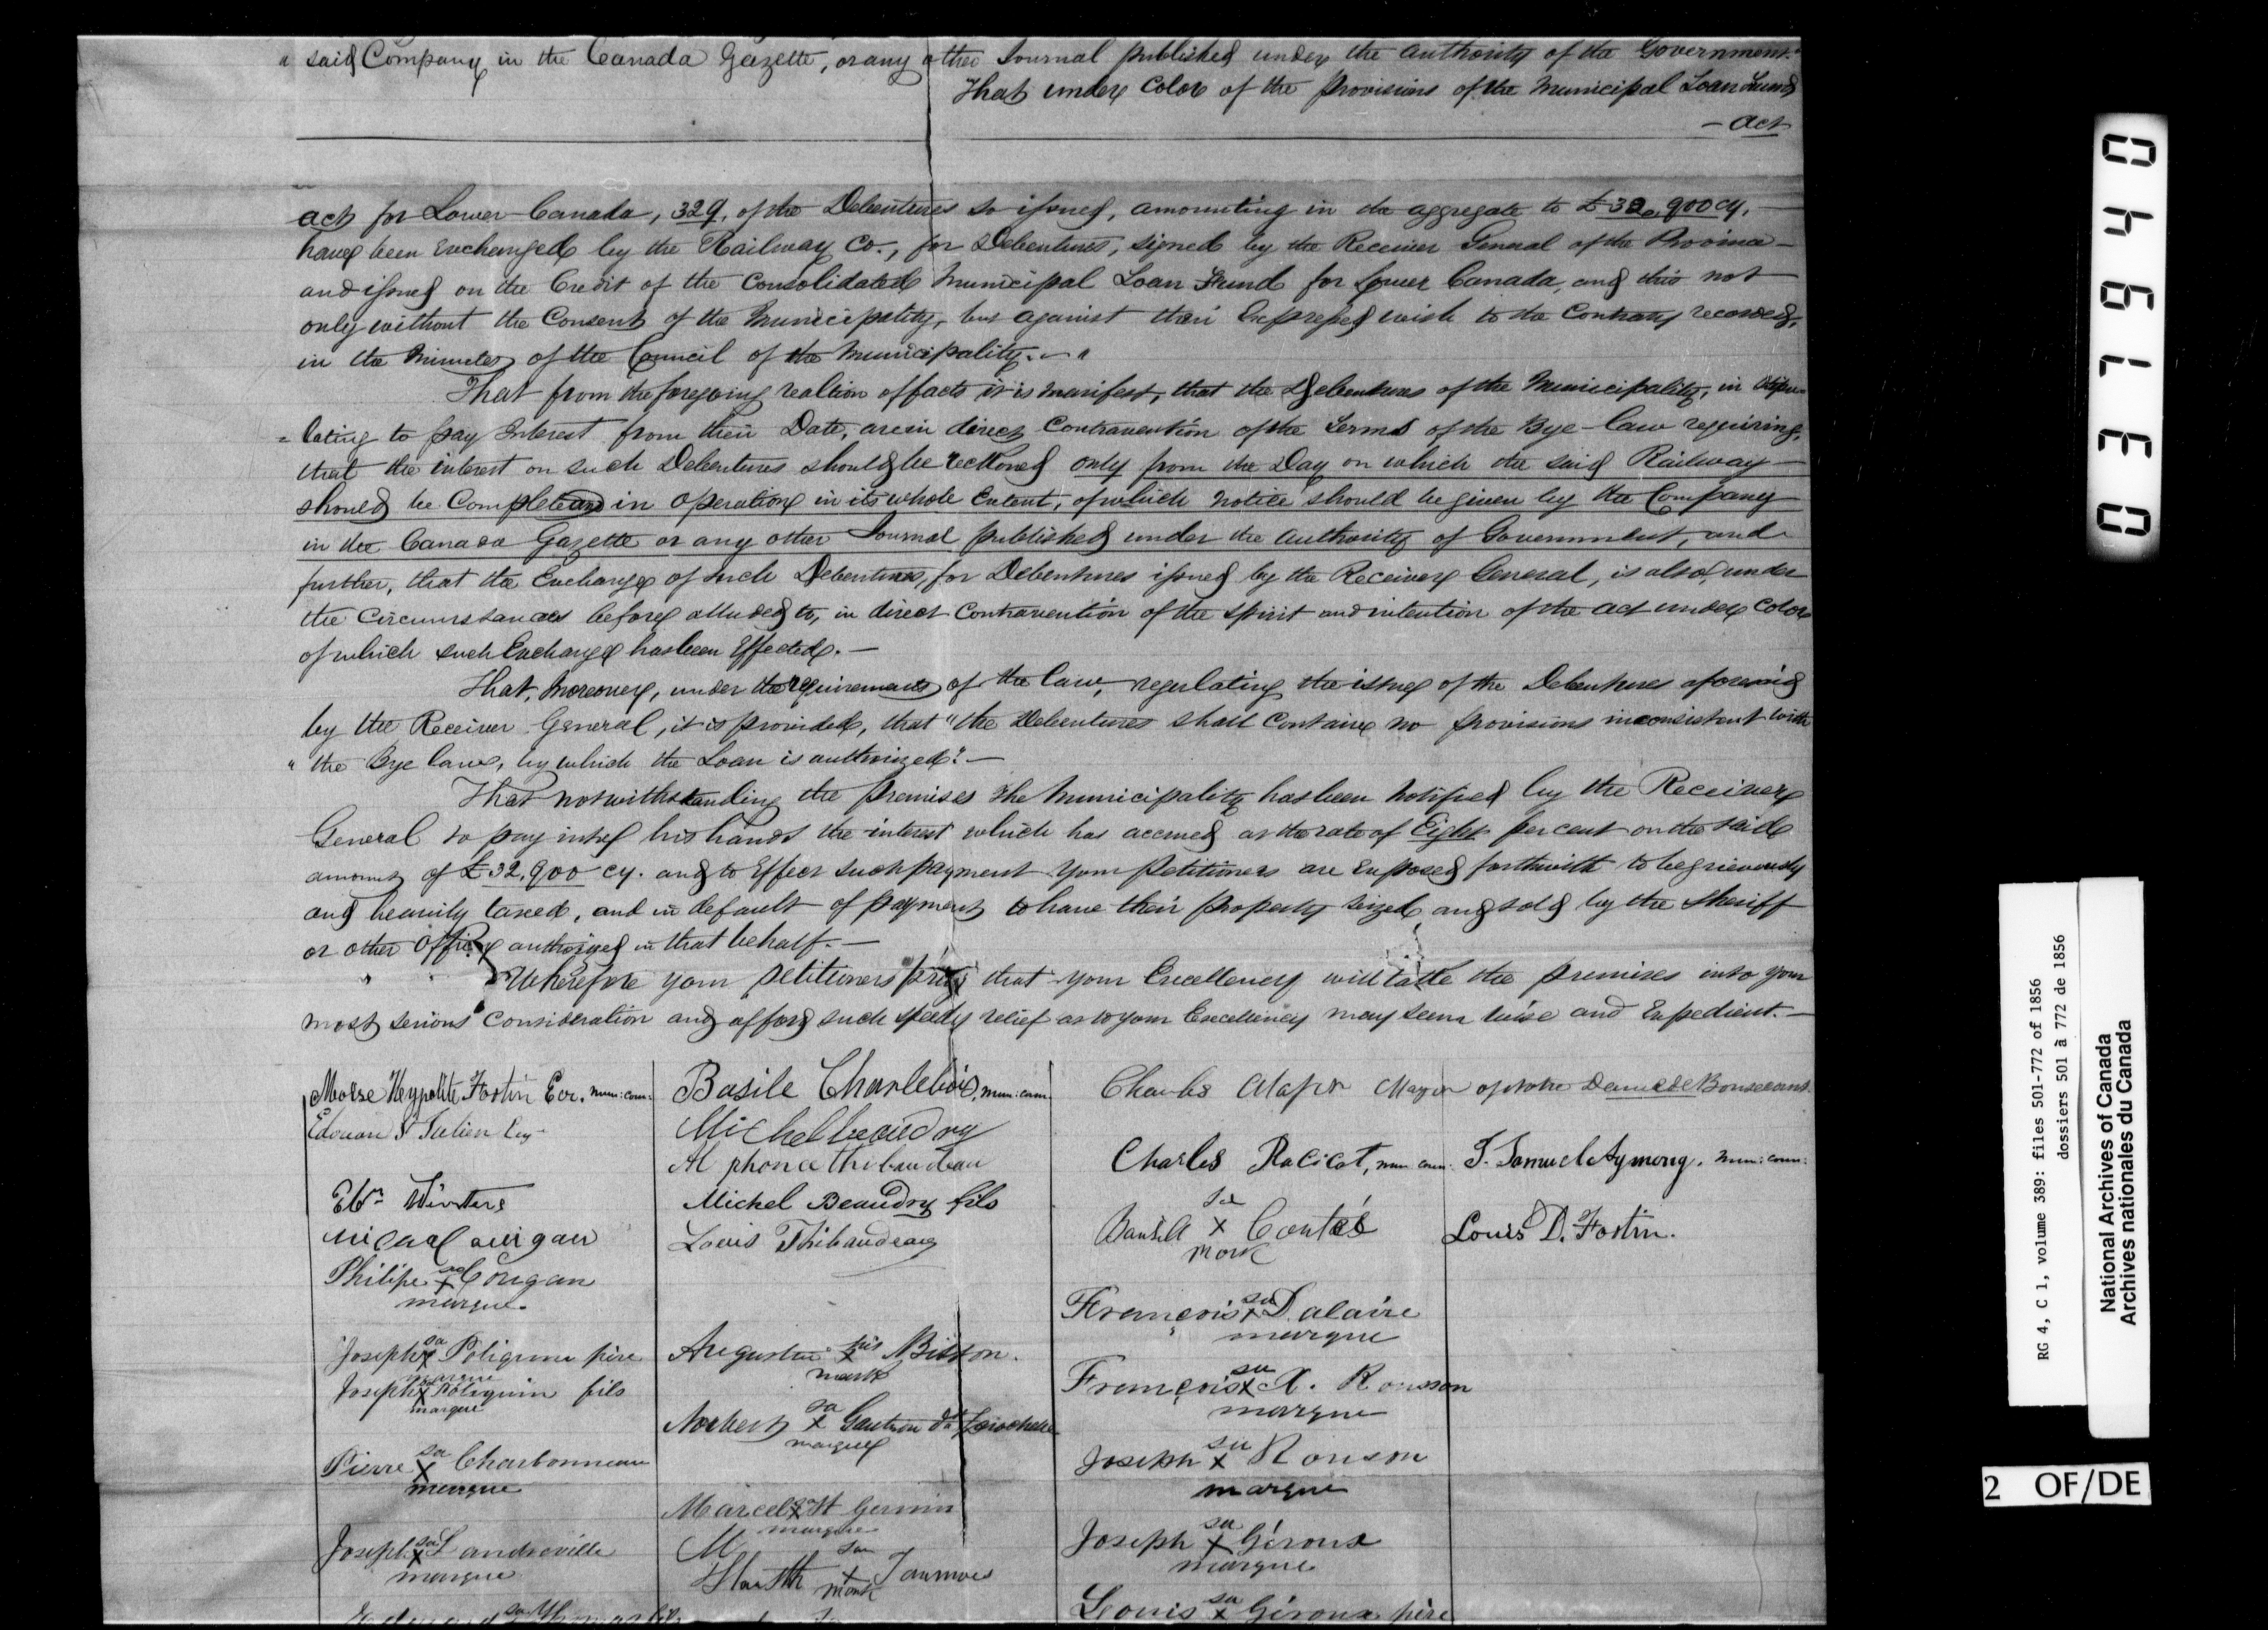 " said Company in the Canada Gazette, or any other Journal published under the authority of the Government."
That under Color of the provisions of the Municipal Loan Fund
- act
act for Lower Canada, 329, of the Debentures so issued, amounting in the aggregate to £32,900 cy,
have been Exchanged by the Railway Co., for Debentures, signed by the Receiver General of the Province
and issued on the Credit of the Consolidated Municipal Loan Fund for Lower Canada, and this not
only without the Consent of the Municipality, but against their Expressed wish to the Contrary recorded,
in the Minutes of the Council of the Municipality. "
That from the foregoing realtion of facts it is manifest, that the Debentures of the Municipality, in stipu-
= lating to pay Interest from their Date, are in direct Contravention of the Terms of the Bye-law requiring,
that the interest on such Debentures should be reckoned only from the Day on which the said Railway
should be Complete and in operation in its whole Extent, of which notice should be given by the Company
in the Canada Gazette or any other Journal published under the authority of Government, and
further, that the Exchange of such Debentures, for Debentures issued by the Receiver General, is also, under
the Circumstances before alluded to, in direct Contravention of the spirit and intention of the act under Color
of which such Exchange has been Effected. —
That, Moreover, under the requirements of the law, regulating the issue of the Debentures aforesaid
by the Receiver General, it is provided, that "the Debentures shall Contain no provisions inconsistent with
" the Bye law, by which the Loan is authorized". —
That notwithstanding the premises the Municipality has been Notified by the Receiver
General to pay into his hands the interest which has accrued at the rate of Eight per cent on the said
amount of £32,900 cy. and to Effect such payment your Petitioners are Exposed forthwith to be grievously
and heavily taxed, and in default of payment to have their property seized and sold by the Sheriff
or other Officer authorized in that behalf. —
Wherefore your petitioners pray that your Excellency will take the premises into your
most serious Consideration and afford such speedy relief as to your Excellency may seem wise and Expedient. —
Moïse Hyppolite Fortin Ecr. mun: coun:
Basile Charlebois, mun: coun.
Charles Mayer of Notre Dame de Bonsecours.
Edouard St Julien Esq
Michel beaudry
Alphonce thibaudeau
Charles Racicot, mun coun: J. Samuel Aymong. mun: coun:
Wm Winters
Michel Beaudry fils
sa
x Coutas
mark
Louis D. Fortin.
Louis Thibaudeau
Philipe sa x Corigan
marque
François sa x Dalaire
marque
Joseph sa x Poligrin père
marque
Augustin his x Bisson.
mark
Joseph x Poliquin fils
marque
François sa x X. Ronson
marque
Norbert sa x Gautron dt Larochelle
marque
Pierre sa x Charbonneau
marque
Joseph sa x Ronson
marque
Marcel x St Germin
marque
Joseph sa x Landreville
marque
M
sa x
mark
Joseph sa x Géroux
marque
Louis sa x Géroux père
0371940
RG 4, C 1, volume 389: files 501-772 of 1856
dossiers 501 à 772 de 1856
National Archives of Canada
Archives nationales du Canada
2 OF/DE